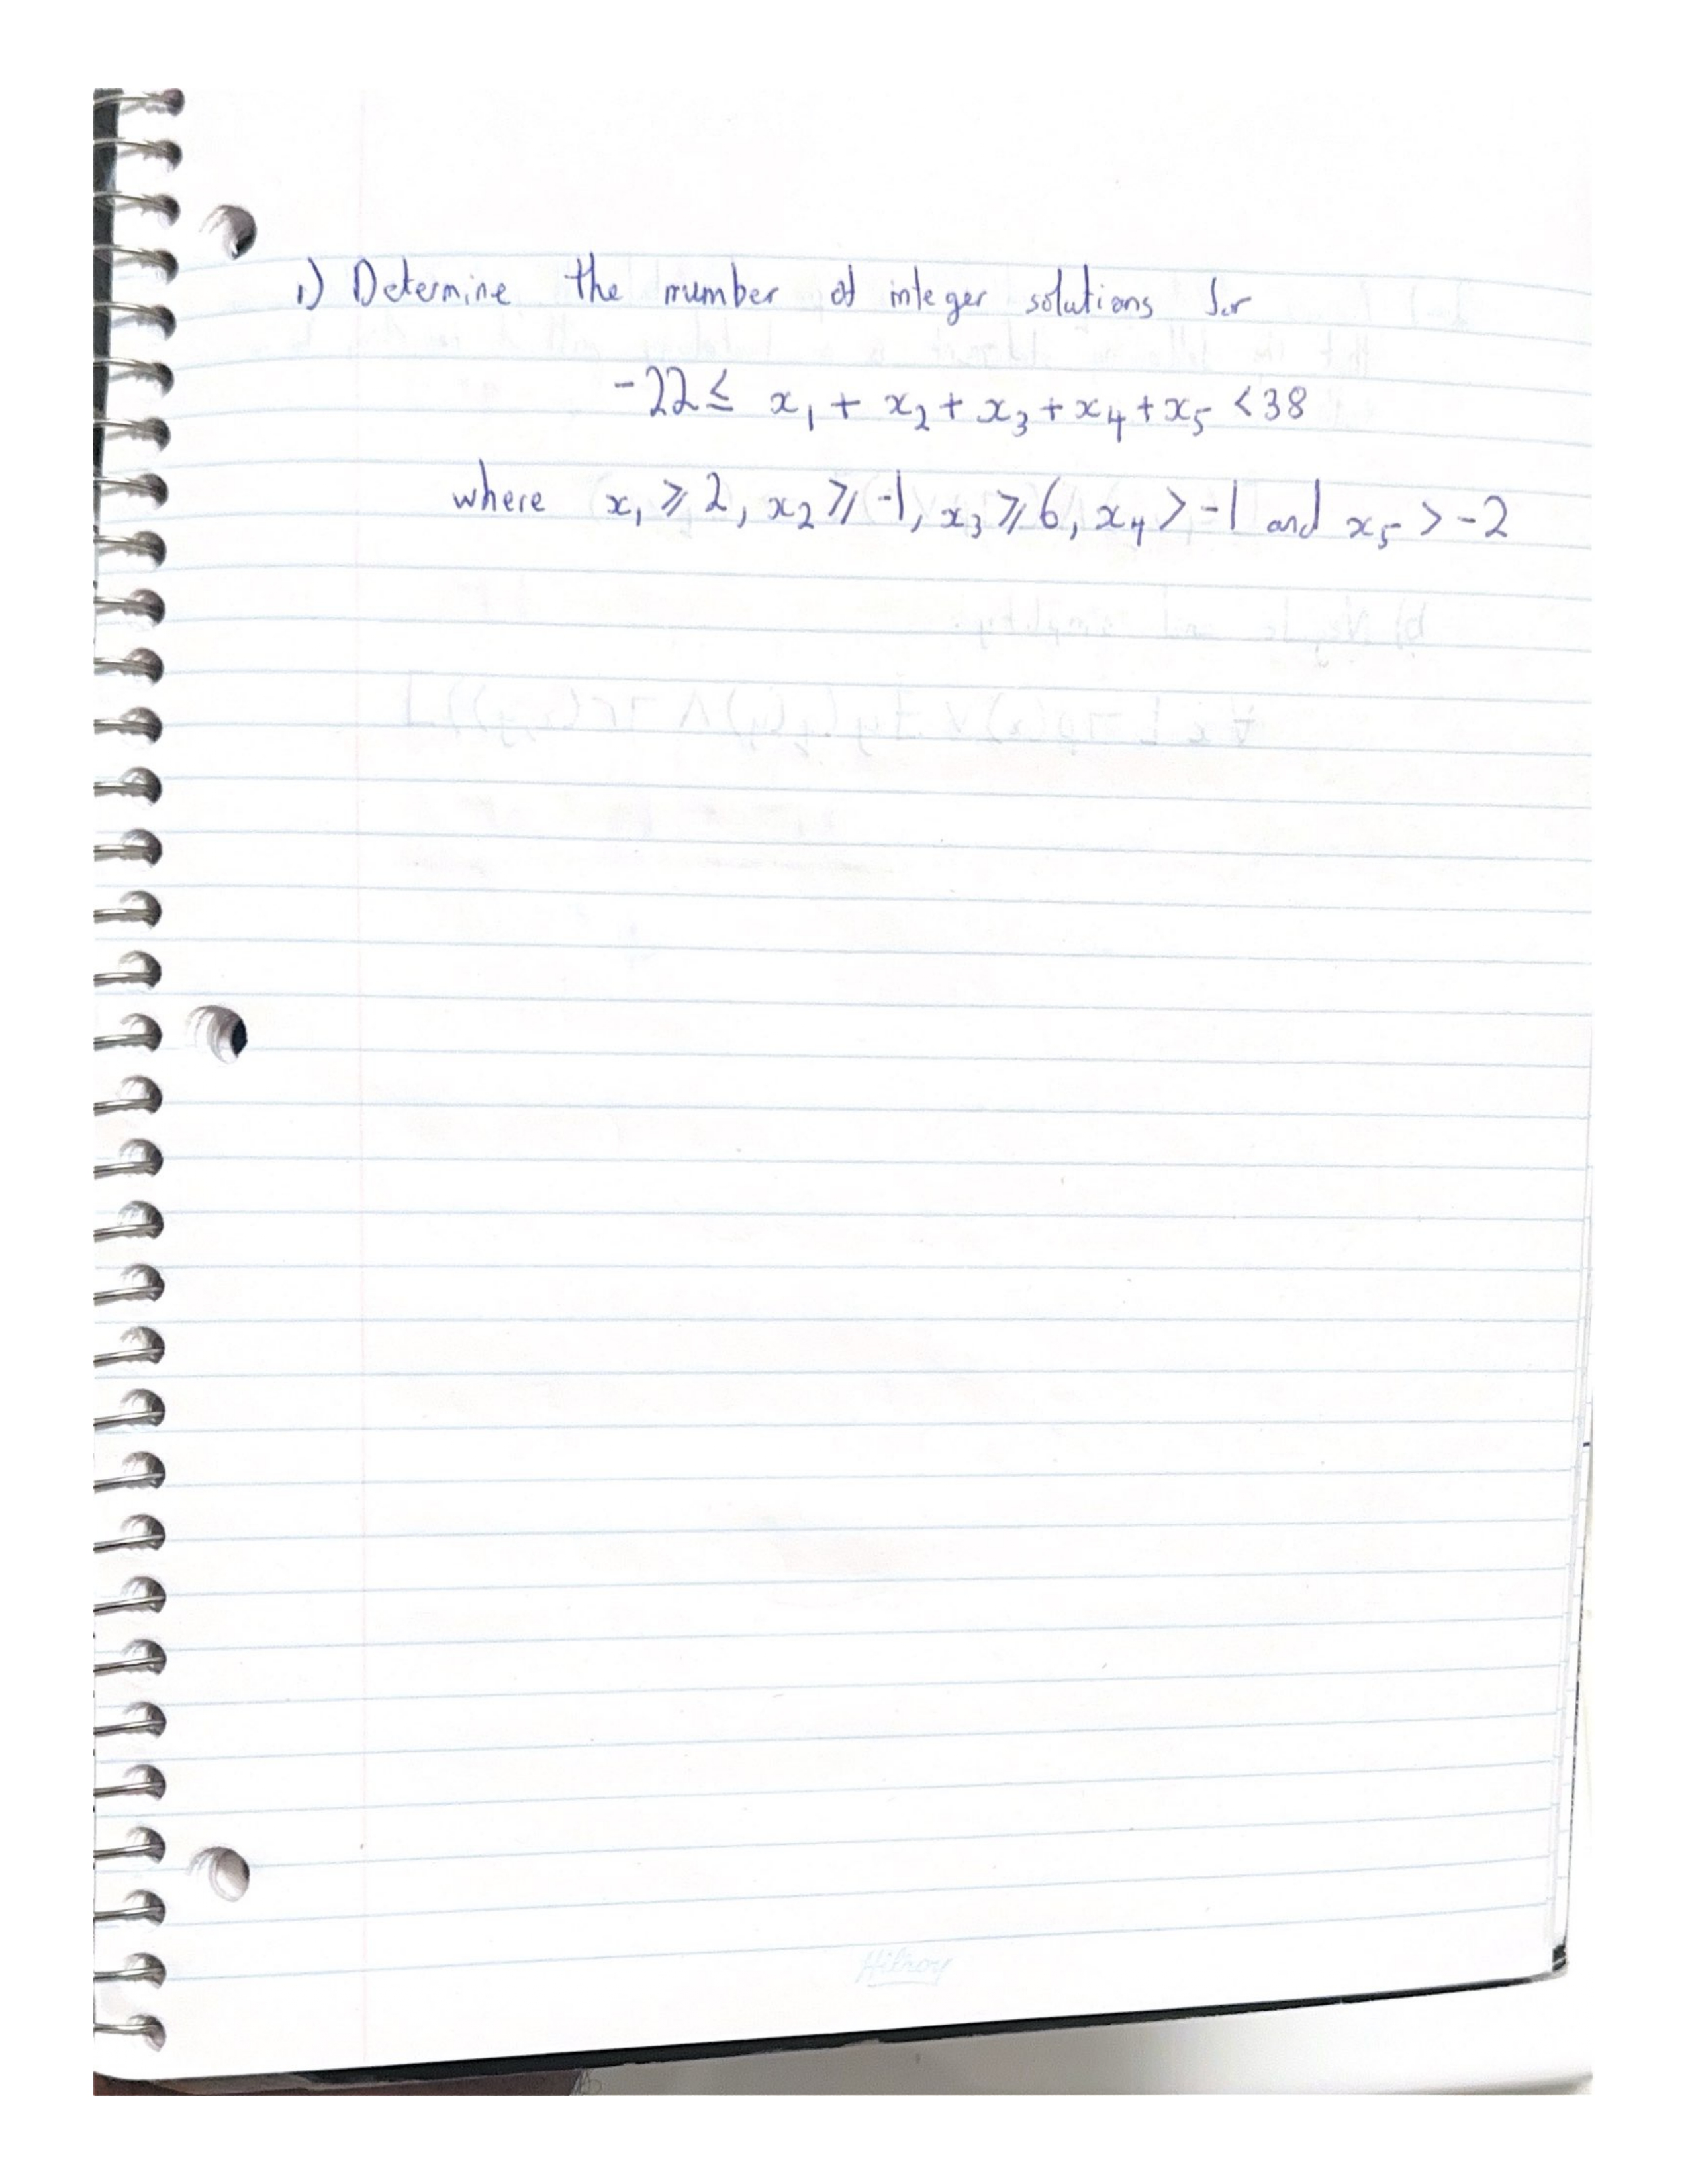 1) Determine the number of integer solutions for
-22 ≤ x₁ + x₂ + x₃ + x₄ + x₅ < 38
where x₁ ⩾ 2, x₂ ⩾ -1, x₃ ⩾ 6, x₄ > -1 and x₅ > -2
Hilroy